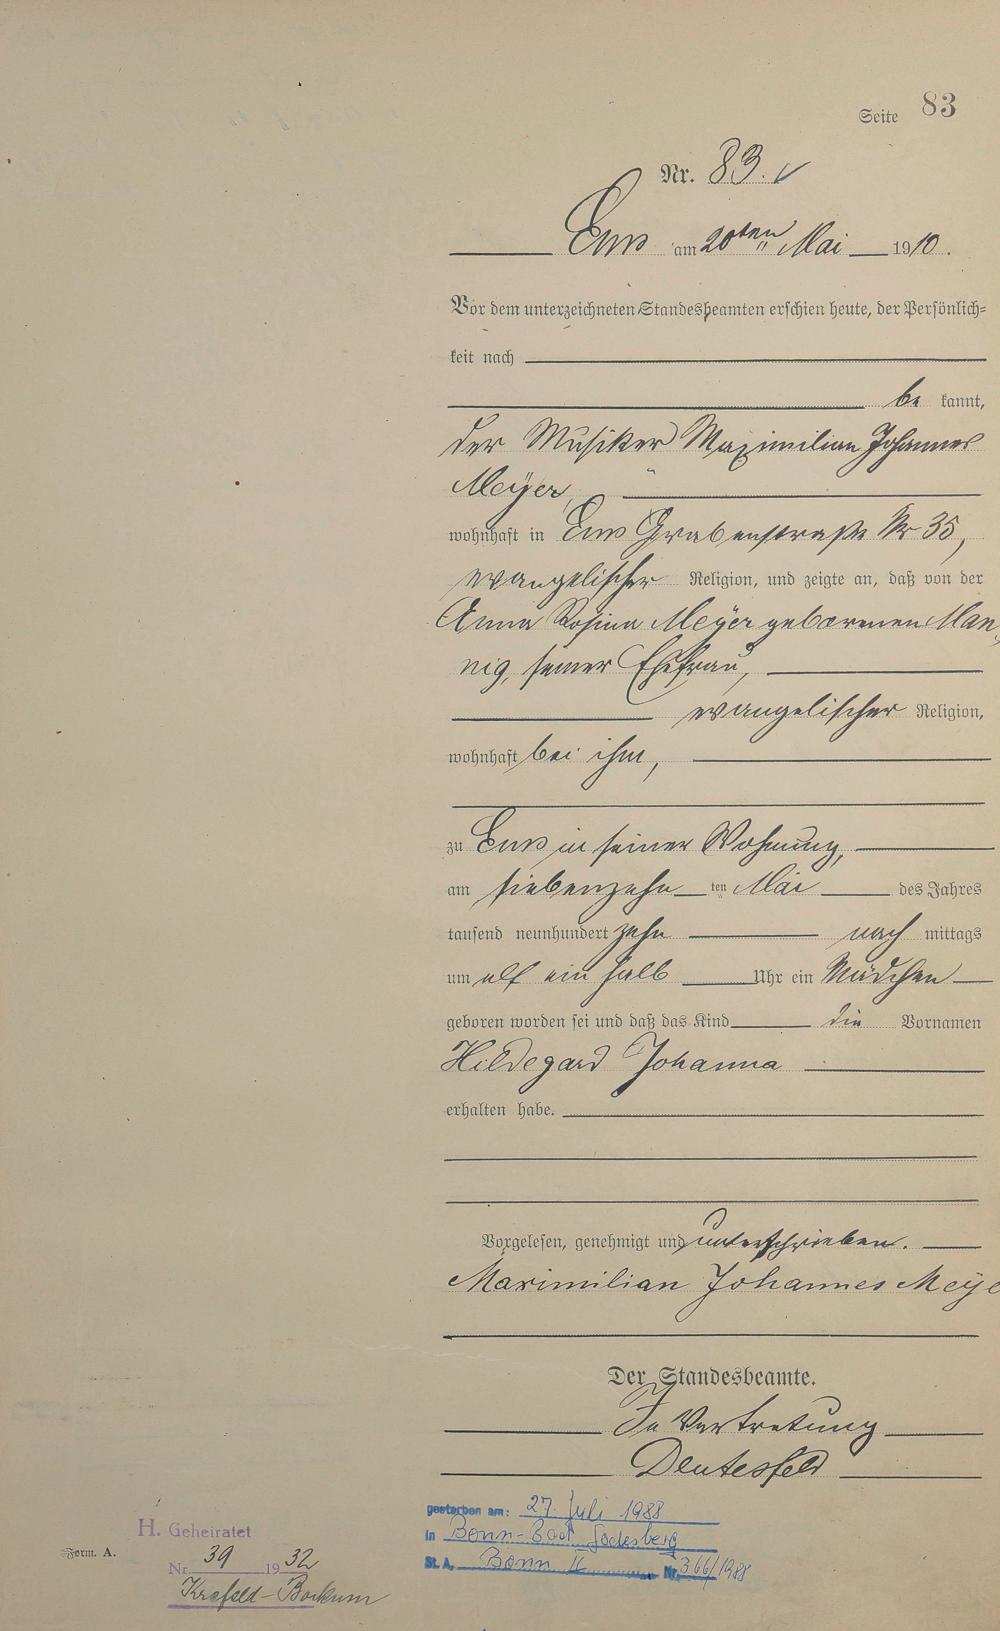 Seite 83
Nr. 83.
Ems am 20ten Mai 1910.
Vor dem unterzeichneten Standesbeamten erschien heute, der Persönlich=
keit nach
be kannt,
der Musiker Maximilian Johannes
Meÿer,
wohnhaft in Ems Grabenstraße Nr 35,
evangelischer Religion, und zeigte an, daß von der
Anna Rosina Meÿer geborenen Man=
nig, seiner Ehefrau,
evangelischer Religion,
wohnhaft bei ihm,
zu Ems in seiner Wohnung,
am siebenzehn ten Mai des Jahres
tausend neunhundert zehn nach mittags
um elf ein halb Uhr ein Mädchen
geboren worden sei und daß das Kind die Vornamen
Hildegard Johanna
erhalten habe.
Vorgelesen, genehmigt und unterschrieben.
Maximilian Johannes Meÿe
Der Standesbeamte.
In Vertretung
Deutesfeld
gestorben am: 27. Juli 1988
in Bonn-Bad Godesberg
St. A. Bonn II Nr. 366/1988
H. Geheiratet
Form. A.
Nr. 39 1932
Krefeld-Bockum